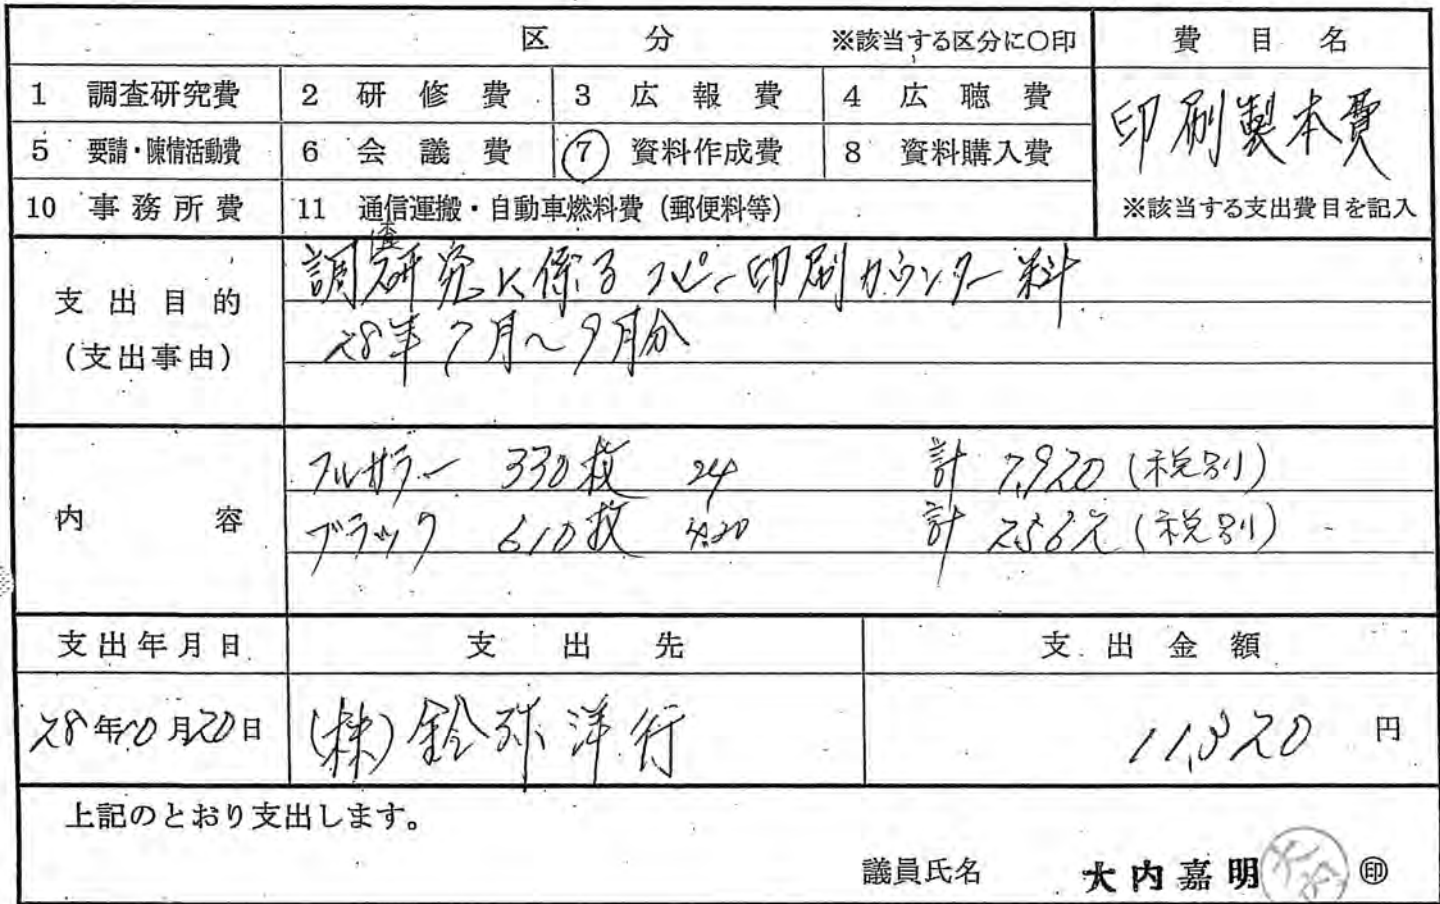 区 分 ※該当する区分に○印 費 目 名
1 調査研究費 2 研 修 費 3 広 報 費 4 広 聴 費
印刷製本費
5 要請・陳情活動費 6 会 議 費 ⑦ 資料作成費 8 資料購入費
10 事 務 所 費 11 通信運搬・自動車燃料費(郵便料等) ※該当する支出費目を記入
支 出 目 的
(支出事由)
調査研究に係るコピー印刷カウンター料
28年7月~9月分
内 容
フルカラー 330枚 24 計 7,920(税別)
ブラック 610枚 4.20 計 2562(税別)
支出年月日 支 出 先 支 出 金 額
28年10月20日 (株)鈴弥洋行 11,320 円
上記のとおり支出します。
議員氏名 大内嘉明 ㊞